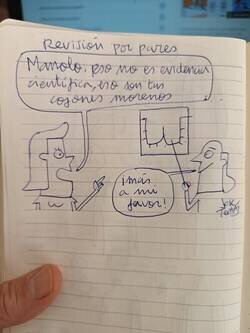 Revisión por pares
Manolo, eso no es evidencia
científica, eso son tus
cojones morenos
¡más
a mi
favor!